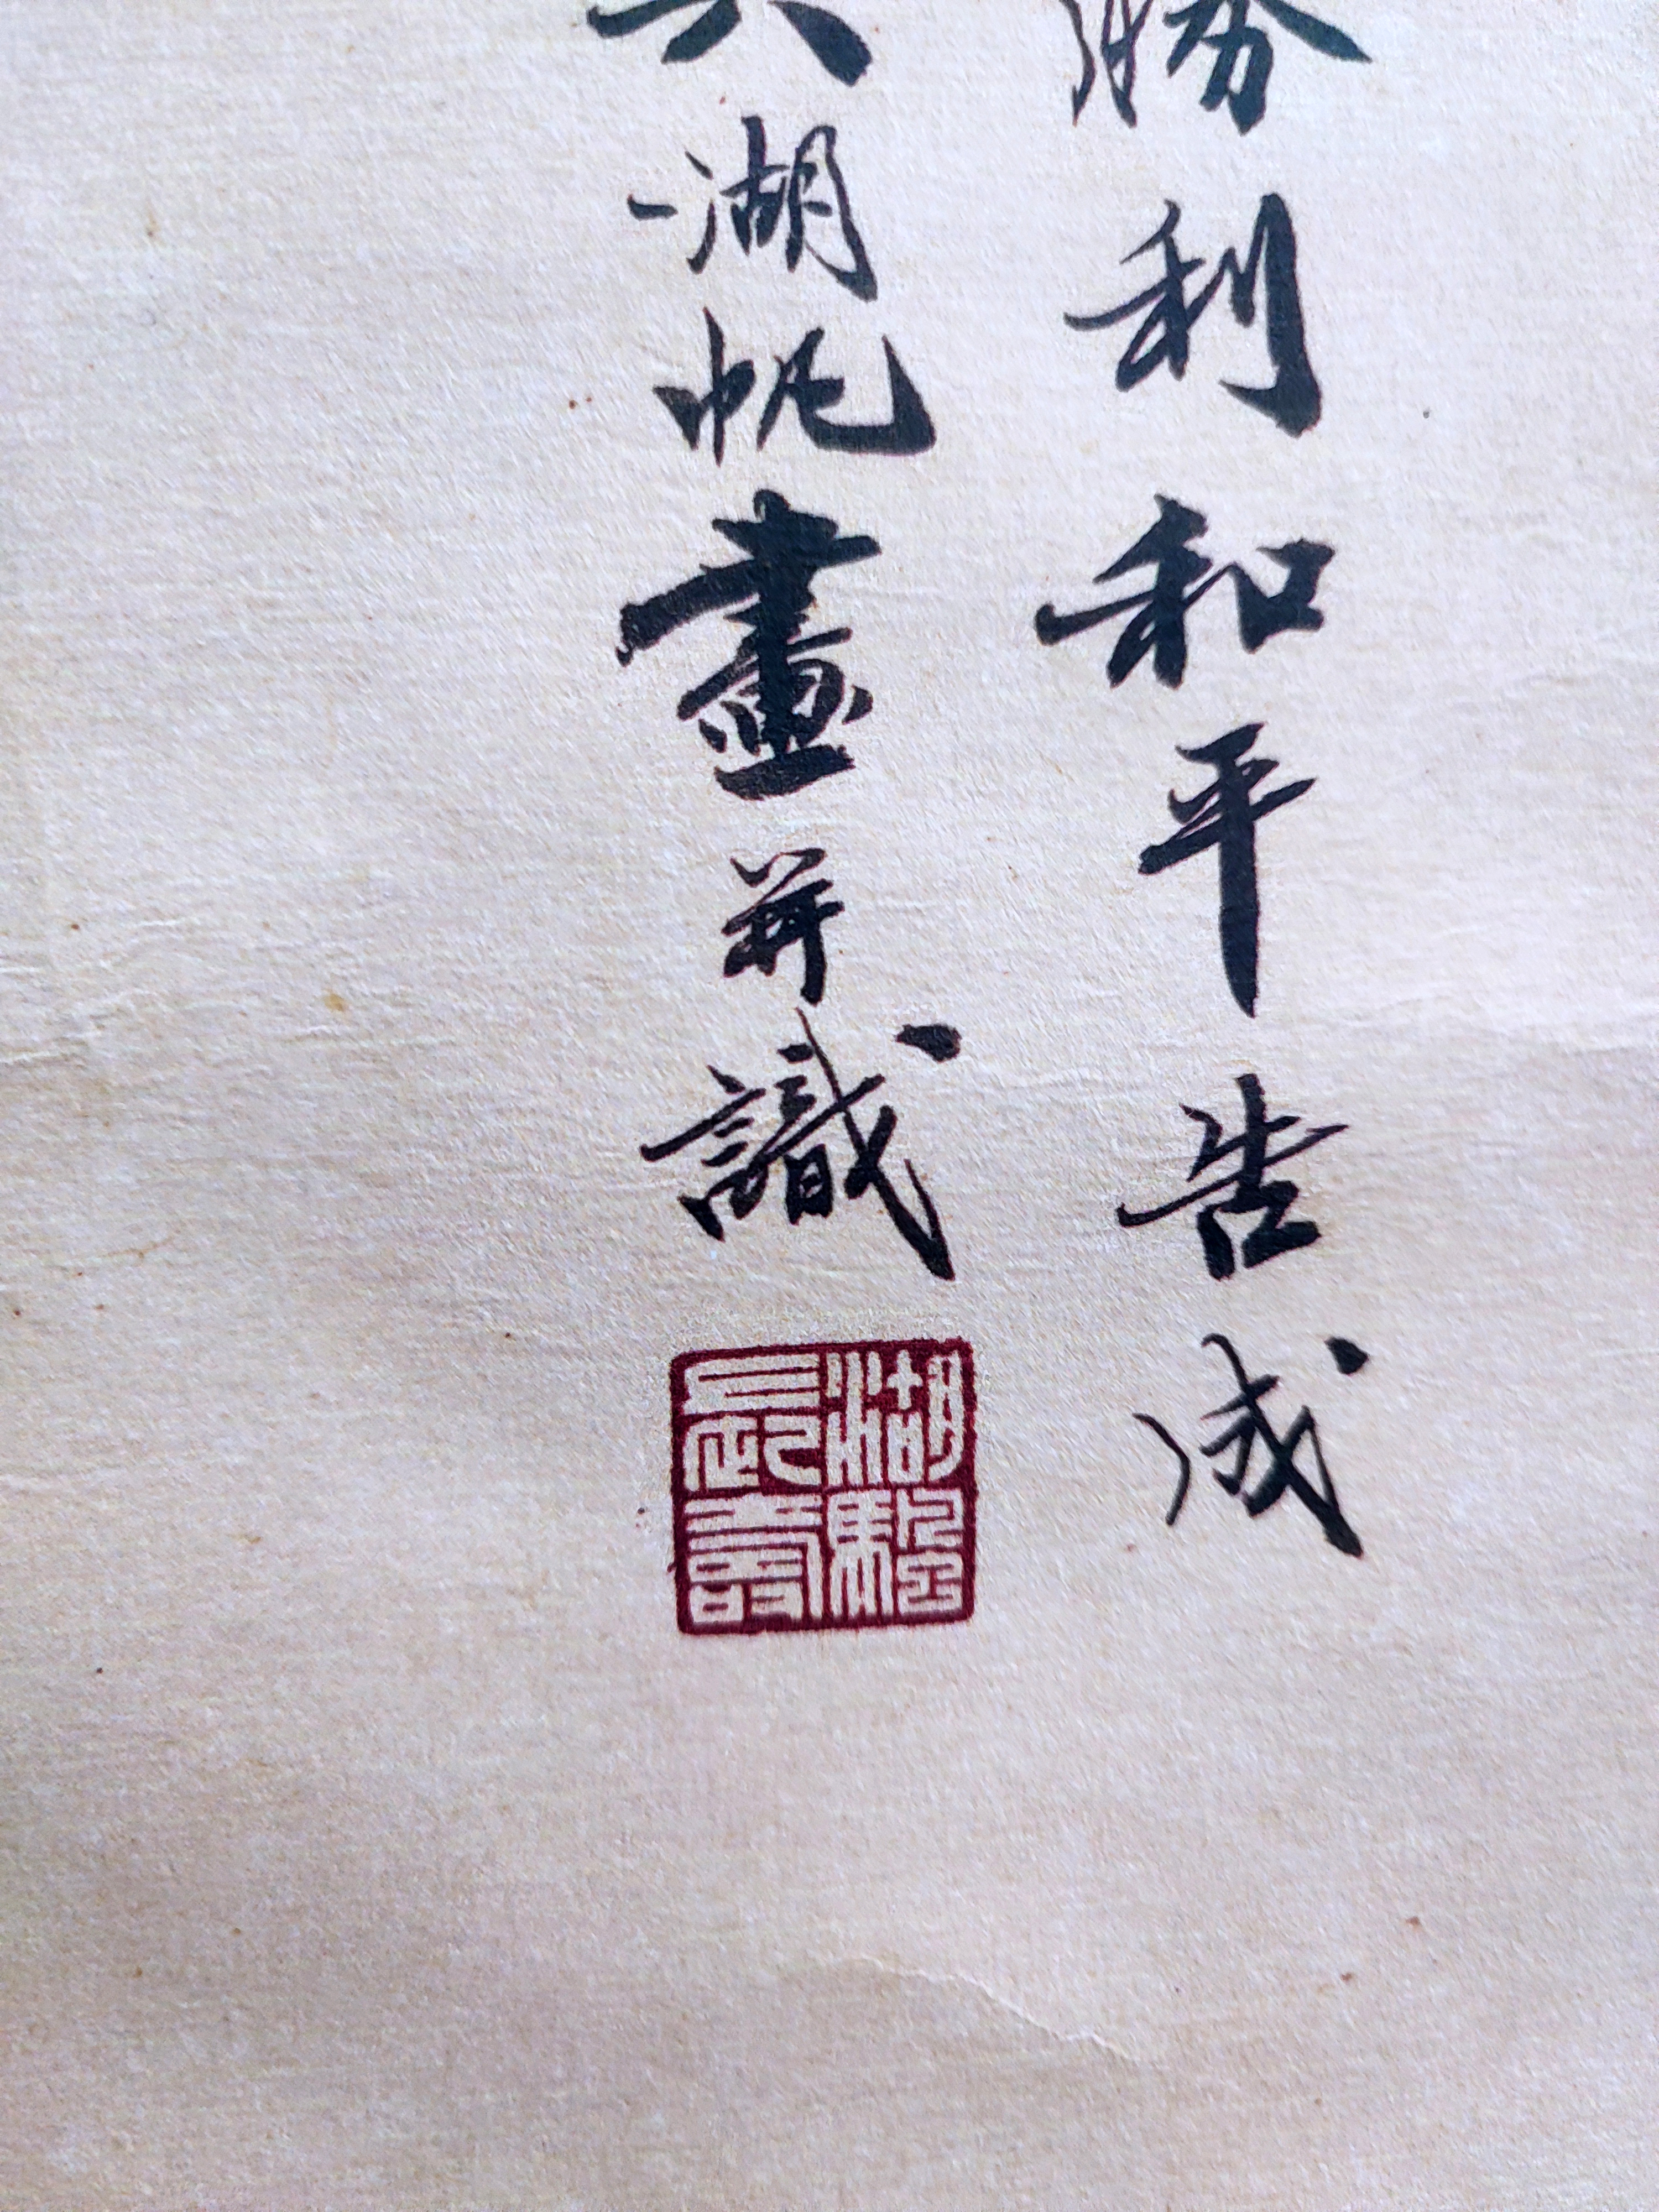 勝利和平告成
湖帆畫并識
湖颿
長壽